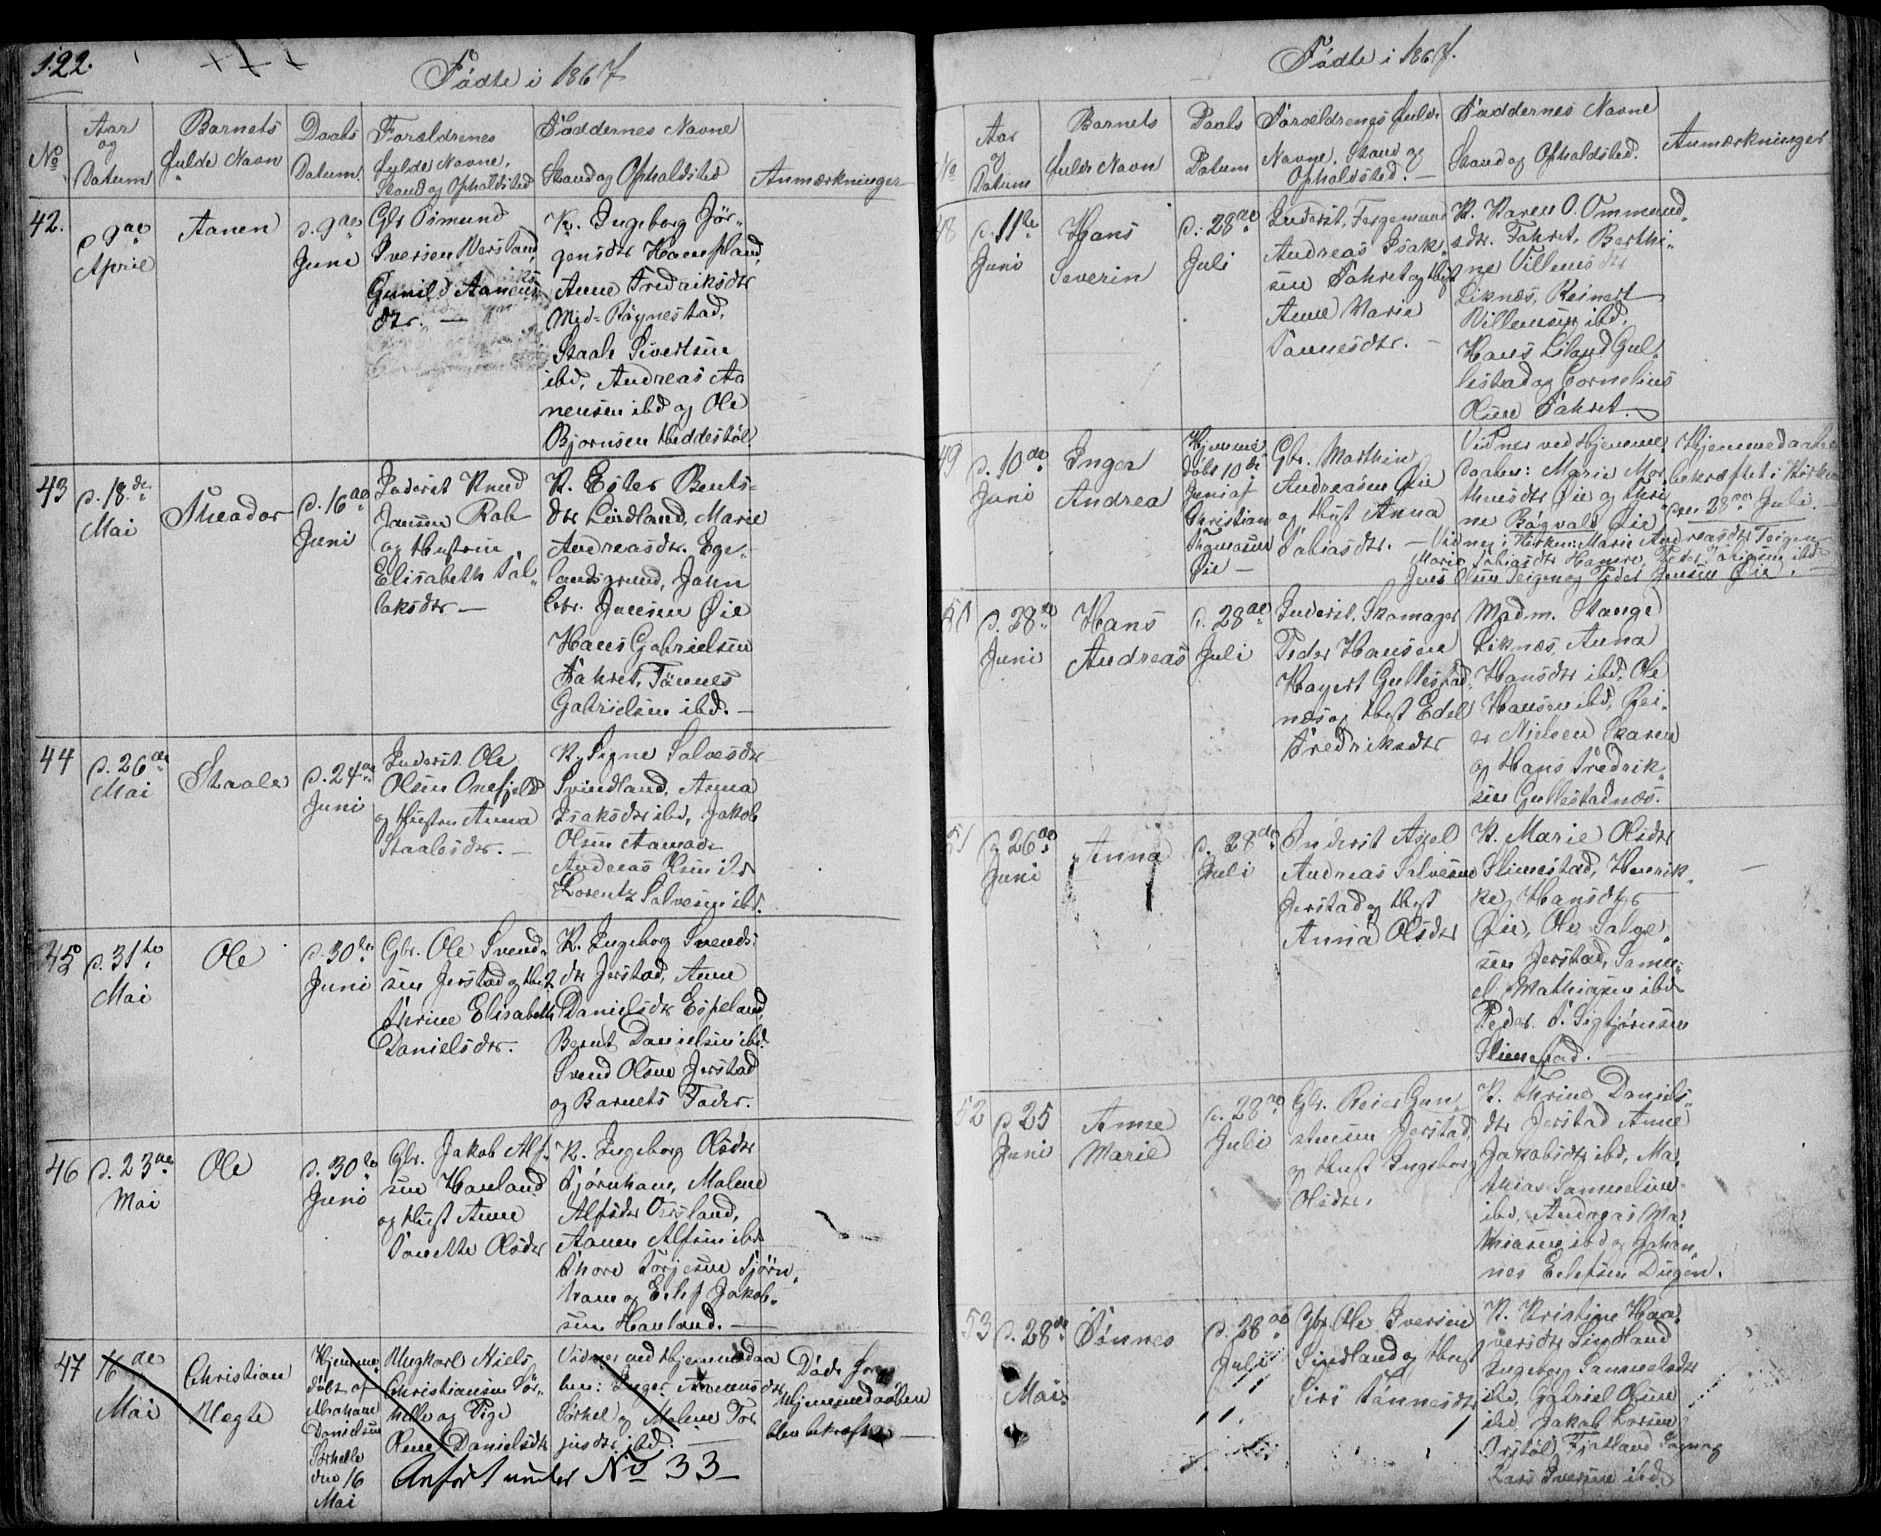 122.
Fødte i 1867
No
Aar
og
Datum
Barnets
fulde Navn
Daabs
Datum
Forældrenes
fulde Navne,
Stand og Opholdsted
Faddernes Navne
Stand og Opholdsted
Anmærkninger
42.
d. 9de
April
Aanen
d. 9de
Juni
Gbr Osmund
Iversen
Gunild Aanens
dtr. —
K. Ingeborg Jør-
gensdtr
Anne Fredriksdtr
Mid-Røynestad,
Staale Sivertsen
ibd, Andreas Aa
nensen ibd og Ole
Bjørnsen Heddestøl
43
d. 18de
Mai
Theodor
d. 16de
Juni
Inderst Knud
Jansen Rob
og Hustru
Elisabeth
laksdtr —
K. Ester Bents-
dtr Lindland, Marie
Andreasdtr. Ege-
landsgrund, John
Chr. Jansen Øie
Hans Gabrielsen
Fahret, Tønnes
Gabrielsen ibd. —
44
d. 26de
Mai
Staale
d. 24de
Juni
Inderst Ole
Olsen Onefjeld
og Hustru Anna
Staalesdtr. —
K. Signe Salvesdtr
Svindland, Anna
Isaksdtr ibd, Jakob
Olsen Aamodt
Andreas Olsen ibd
Lorentz Salvesen ibd.
45
d. 31te
Mai
Ole
d. 30te
Juni
Gbr. Ole Svend-
sen Jerstad og Hst
Thrine Elisabeth
Danielsdtr.
K. Ingeborg Svends-
dtr Jerstad, Anne
Danielsdtr Espeland
Bernt Danielsen ibd.
Svend Olsen Jerstad
og Barnets Fader.
46
d. 23de
Mai
Ole
d. 30te
Juni
Gbr. Jakob Alf-
sen Hauland
og Hust Anne
Tonette Olsdtr
K. Ingeborg Olsdtr
Bjørnham, Malene
Alfsdtr Oysland,
Aanen Alfsen ibd
Thore Torjesen Bjørn-
ham og Eilef Jakob-
sen Hauland. —
47
16de
Mai
Christian
Uegte
Hjemme-
døbt af
Abraham
Danielsen
Sørhelle
den 16
Mai
Ungkarl Niels
Christiansen Sør-
helle og Pige
Rene Danielsdtr
Vidner ved Hjemmedaa
ben: Inger Aanensdtr
Sørhel og Malene Tor
jusdtr ibd. —
Døde før
Hjemmedaaben
blev bekræftet —
Anført under No 33 —
Fødte i 1867.
No
Aar
og
Datum
Barnets
fulde Navn
Daabs
Datum
Forældrenes fulde
Navne, Stand og
Opholdsted. —
Faddernes Navne
Stand og Opholdsted.
Anmærkninger
48
d. 11te
Juni
Hans
Severin
d. 28de
Juli
Inderst, Fergemand
Andreas Isak-
sen Fahret og Hust
Anne Marie
Tønnesdtr. —
K. Karen O. Ommund-
sdtr. Fahret, Berthi-
ne Villumsdtr
Liknæs, Reinert
Villumsen ibd,
Hans Eiland Gul-
lestad og Cornelius
Olsen Fahret.
49
d. 10de
Juni
Inger
Andrea
Hjemme-
døbt 10de
Juni af
Christian
Sigmasen
Øie —
Gbr. Marthin
Andreasen Øie
og Hust Anna
Tobiasdtr. —
Vidner ved Hjemme-
daaben: Marie Mor-
thensdtr Øie og Thri
ne Bågvald Øie
Hjemmedaaben
bekræftet i Kirken
den 28de Juli.
Vidner i Kirken: Marie Andreasdtr Teigen
Marie Tobiasdtr Hamre, Peder Tobiasen ibd
Jens Olsen Teigen og Peder Jensen Øie. —
50
d. 28de
Juni
Hans
Andreas
d. 28de
Juli
Inderst, Skomager
Peder Hansen
Hayert Gullestad-
næs og Hust Edel
Fredriksdtr
Madm. Stange
Liknæs, Anna
Hansdtr ibd, Ole
Hansen ibd, Rei-
er Nielsen Skaren
og Hans Fredrik-
sen Gullestadnæs.
51
d. 26de
Juni
Anna
d. 28de
Juli
Inderst Axel
Andreas Salvesen
Jerstad og Hust
Anna Olsdtr
K. Marie Olsdtr
Slimestad, Henrik-
ke Hansdtr
Øie, Ole Salve-
sen Jerstad, Samu-
el Mathiasen ibd
Peder S. Sigbjørnsen
Slimestad. —
52
d. 25
Juni
Anne
Marie
d. 28de
Juli
Gbr. Reier Gun
stensen Jerstad
og Hust Ingeborg
Olsdtr.
K. Thrine Daniels-
dtr Jerstad Anne
Jakobsdtr ibd, Ma-
thias Samuelsen
ibd, Andreas Ma-
thiasen ibd og Johan-
nes Eilefsen Dugen.
53
d. 28de
Mai
Tønnes
d. 28de
Juli
Gbr. Ole Iversen
Sindland og Hust
Siri Tønnesdtr
K. Kristine Haa-
versdtr Sindland
Ingeborg Samuelsdtr
ibd, Gabriel Olsen
ibd Jakob Larsen
Fjotland Sogn og
Lars Iversen ibd